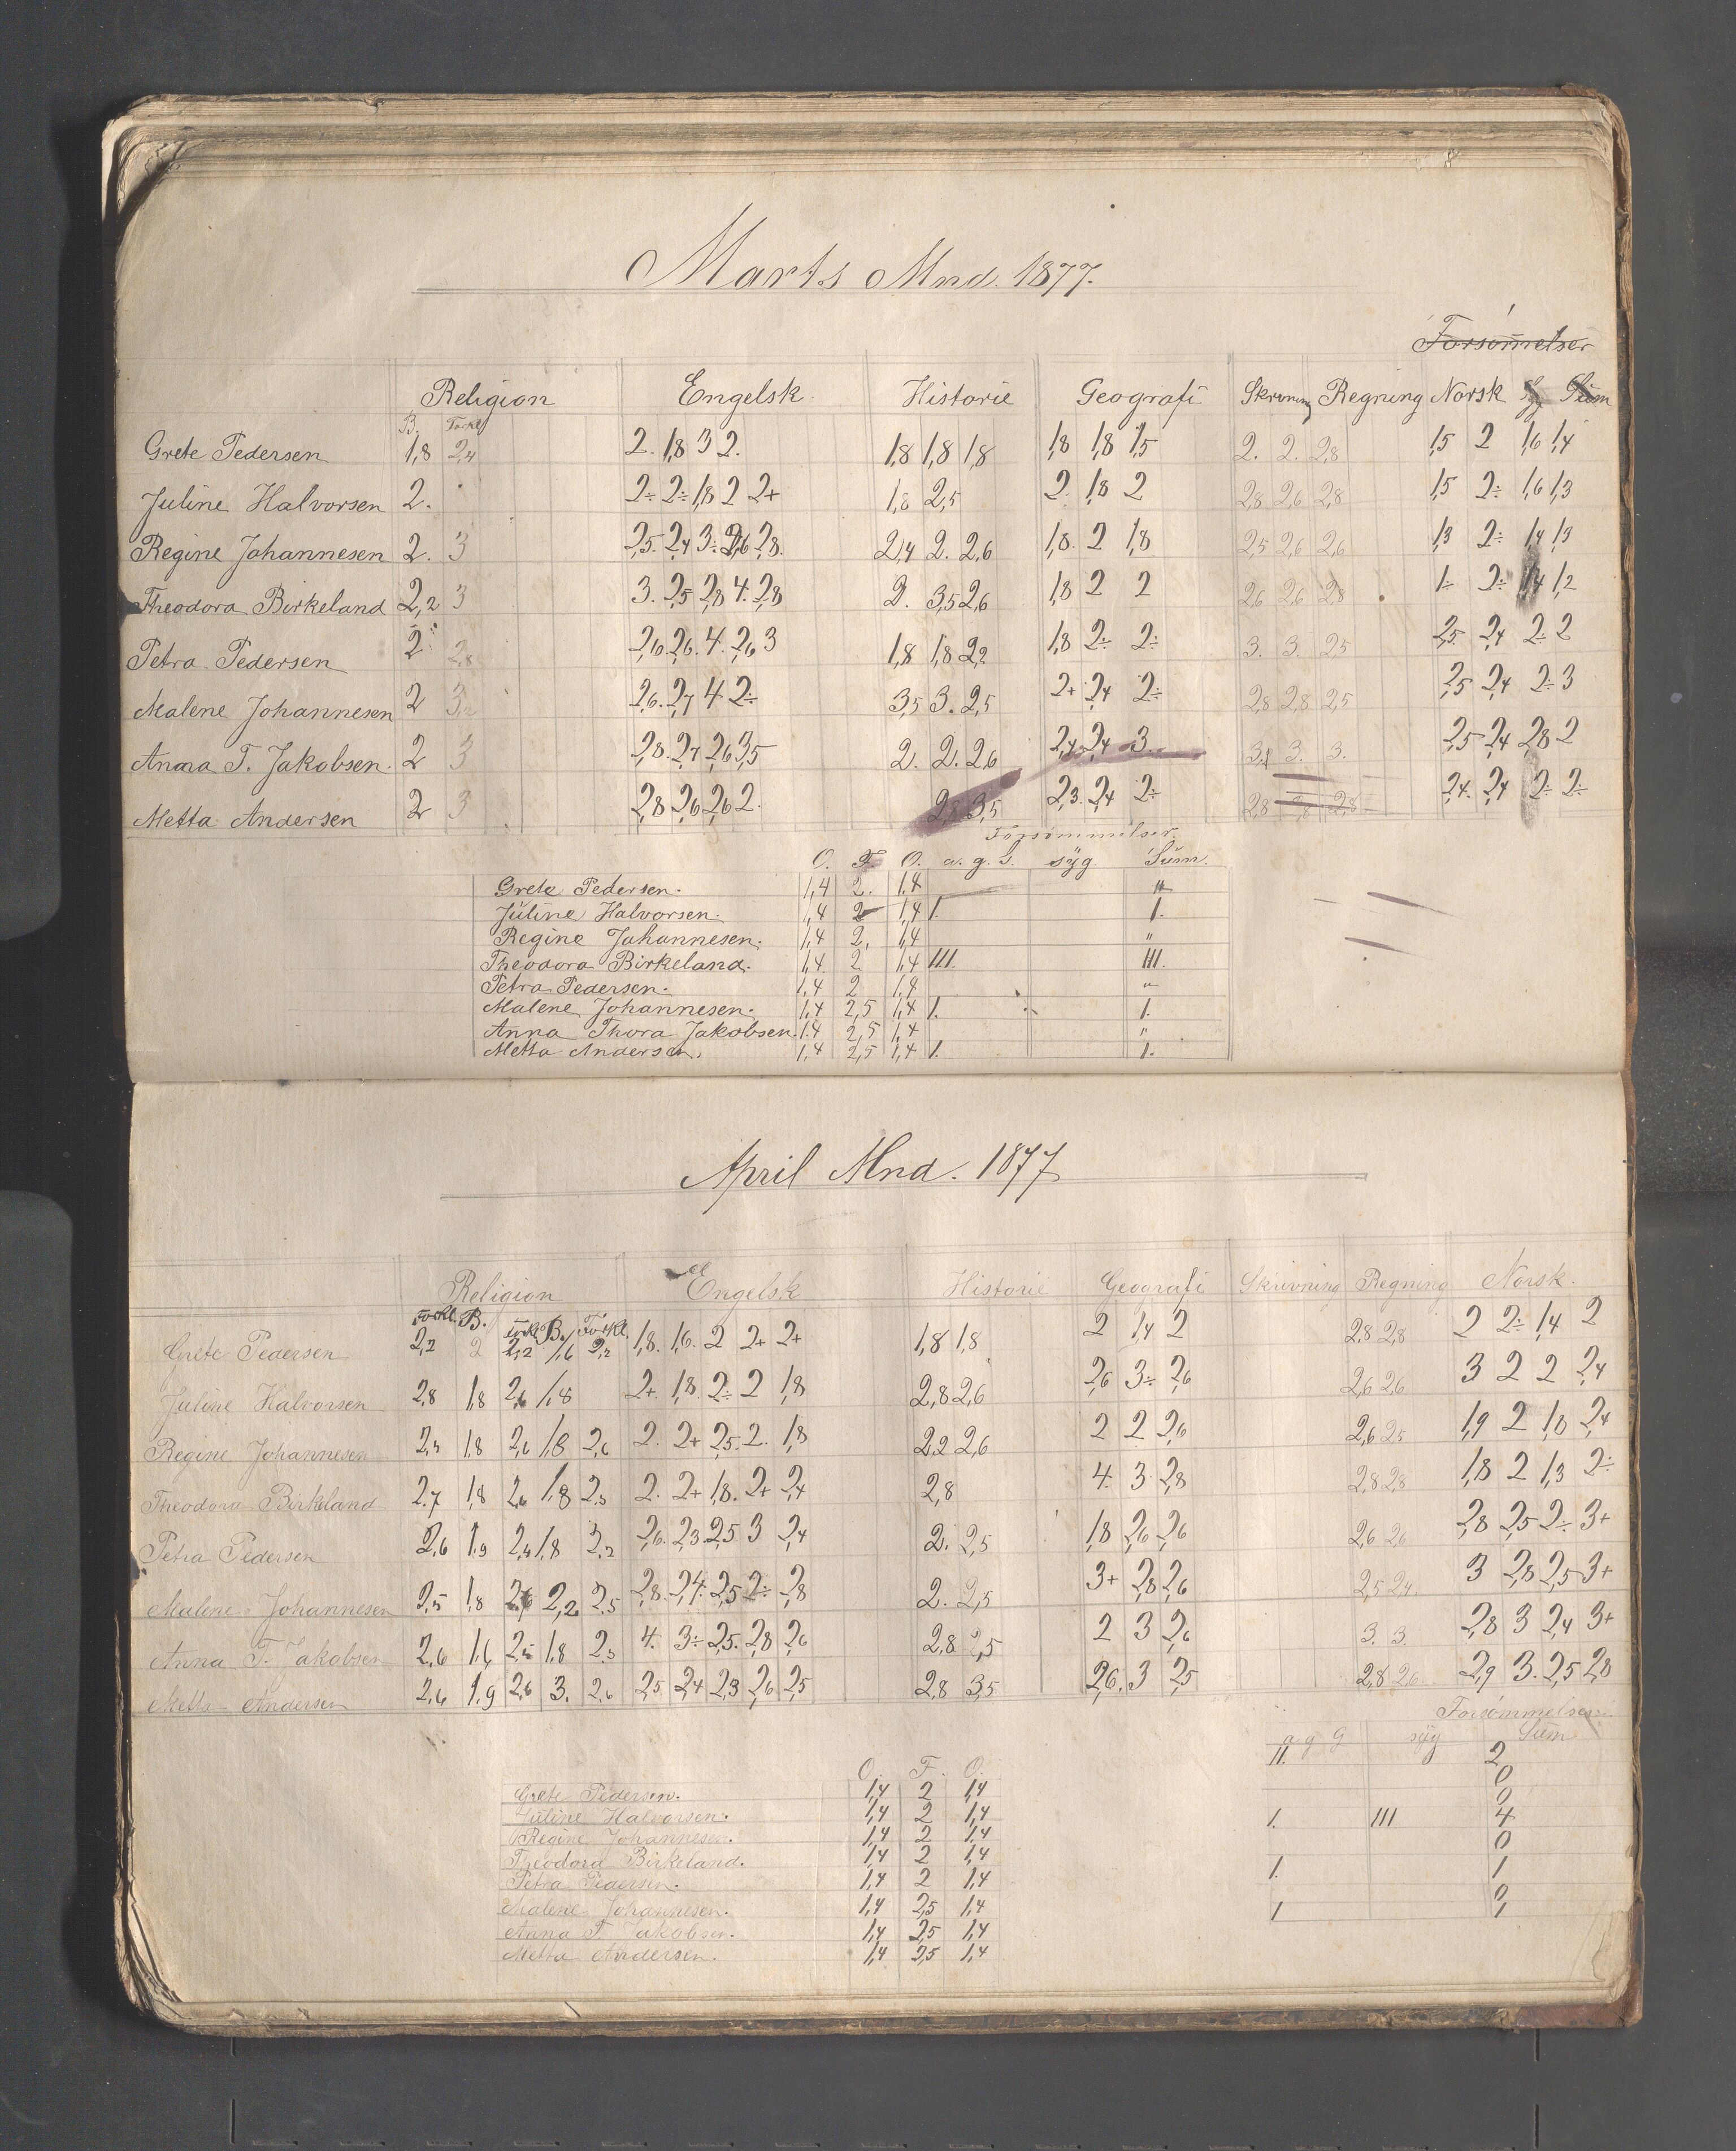 Marts Mnd. 1877.
Forsømmelser
Religion Engelsk Historie Geografi Skrivning Regning Norsk Syg Sum
B. Forkl
Grete Pedersen 1,8 2,4 2. 1,8 3 2. 1,8 1,8 1,8 1,8 1,8 1,5 2. 2. 2,8 1,5 2 1,6 1,4
Juline Halvorsen 2. 2÷ 2÷ 1,8 2 2+ 1,8 2,5 2 1,8 2 2,8 2,6 2,8 1,5 2÷ 1,6 1,3
Regine Johannesen 2. 3 2,5. 2,4 3÷ 2,6 2,8. 2,4 2. 2,6 1,8. 2 1,8 2,5 2,6 2,6 1,3 2÷ 1,4 1,3
Theodora Birkeland 2,2 3 3. 2,5 2,8 4. 2,8 2. 3,5 2,6 1,8 2 2 2,6 2,6 2,8 1÷ 2÷ 1,4 1,2
Petra Pedersen 2÷ 2,8 2,6. 2,6. 4. 2,6 3 1,8 1,8 2,2 1,8 2÷ 2÷ 3. 3. 2,5 2,5. 2,4 2÷ 2
Malene Johannesen 2 3,2 2,6. 2,7 4 2÷ 3,5 3. 2,5 2+ 2,4 2÷ 2,8 2,8 2,5 2,5 2,4 2÷ 3
Anna T. Jakobsen. 2 3 2,8. 2,7 2,6 3,5 2. 2. 2,6 2,4 2,4 3. 3,1 3. 3. 2,5 2,4 2,8 2
Metta Andersen 2 3 2,8 2,6 2,6 2. 2,8 3,5 2,3. 2,4 2÷ 2,8 2,8 2,8 2,4. 2,4 2÷ 2÷
Forsømmelser.
O. F. O. a. g. G. syg. Sum.
Grete Pedersen. 1,4 2. 1,4 "
Juline Halvorsen. 1,4 2 1,4 1. 1.
Regine Johannesen. 1,4 2, 1,4 "
Theodora Birkeland. 1,4 2 1,4 III. III.
Petra Pedersen. 1,4 2 1,4 "
Malene Johannesen. 1,4 2,5 1,4 1. 1.
Anna Thora Jakobsen. 1,4 2,5 1,4 "
Metta Andersen. 1,4 2,5 1,4 1. 1.
April Mnd. 1877
Religion Engelsk Historie Geografi Skrivning Regning Norsk.
Forkl. B. Forkl B. Forkl.
Grete Pedersen 2,2 2 2,2 1,6 2,2 1,8. 1,6. 2 2+ 2+ 1,8 1,8 2 1,4 2 2,8 2,8 2 2÷ 1,4 2
Juline Halvorsen 2,8 1,8 2,6 1,8 2+ 1,8. 2÷ 2 1,8 2,8 2,6 2,6 3÷ 2,6 2,6 2,6 3 2 2 2,4
Regine Johannesen 2,4 1,8 2,6 1,8 2,6 2. 2+ 2,5. 2. 1,8 2,2 2,6 2 2 2,6 2,6 2,5 1,9 2 1,8 2,4
Theodora Birkeland 2,7 1,8 2,6 1,8 2,3 2. 2+ 1,8. 2+ 2,4 2,8 4. 3. 2,8 2,8 2,8 1,8 2 1,3 2÷
Petra Pedersen 2,6 1,9 2,4 1,8 2,2 2,6. 2,3. 2,5 3 2,4 2. 2,5 1,8 2,6 2,6 2,6 2,6 2,8 2,5 2÷ 3+
Malene Johannesen 2,5 1,8 2,6 2,2 2,5 2,8. 2,4. 2,5 2÷ 2,8 2. 2,5 3+ 2,8 2,6 2,5 2,4. 3 2,8 2,5 3+
Anna T. Jakobsen 2,6 1,6 2,5 1,8 2,3 4. 3÷ 2,5. 2,8 2,6 2,8 2,5 2 3 2,6 3. 3. 2,8 3 2,4 3+
Metta Andersen 2,6 1,9 2,6 3. 2,6 2,5 2,4 2,3 2,6 2,5 2,8 3,5 2,6. 3 2,5 2,8 2,6 2,9 3. 2,5 2,8
Forsømmelser
a g G syg Sum
O. F. O.
Grete Pedersen. 1,4 2 1,4 II. 2
Juline Halvorsen. 1,4 2 1,4 0
Regine Johannesen. 1,4 2 1,4 0
Theodora Birkeland. 1,4 2 1,4 1. III 4
Petra Pedersen. 1,4 2 1,4 0
Malene Johannesen. 1,4 2,5 1,4 1. 1
Anna T. Jakobsen. 1,4 2,5 1,4 0
Metta Andersen. 1,4 2,5 1,4 1 1